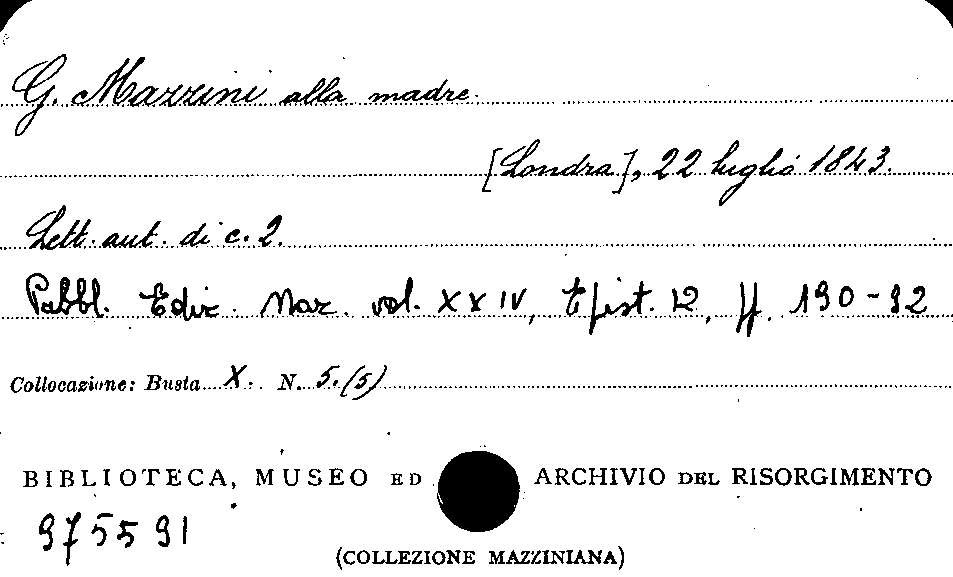 G. Mazzini alla madre.
[Londra], 22 luglio 1843.
Lett. aut. di c. 2.
Pubbl. Ediz. Naz. vol. XXIV, Epist. 12, pp. 190-92
Collocazione: Busta X. N. 5.(5)
BIBLIOTECA, MUSEO ED ARCHIVIO DEL RISORGIMENTO
975591
(COLLEZIONE MAZZINIANA)